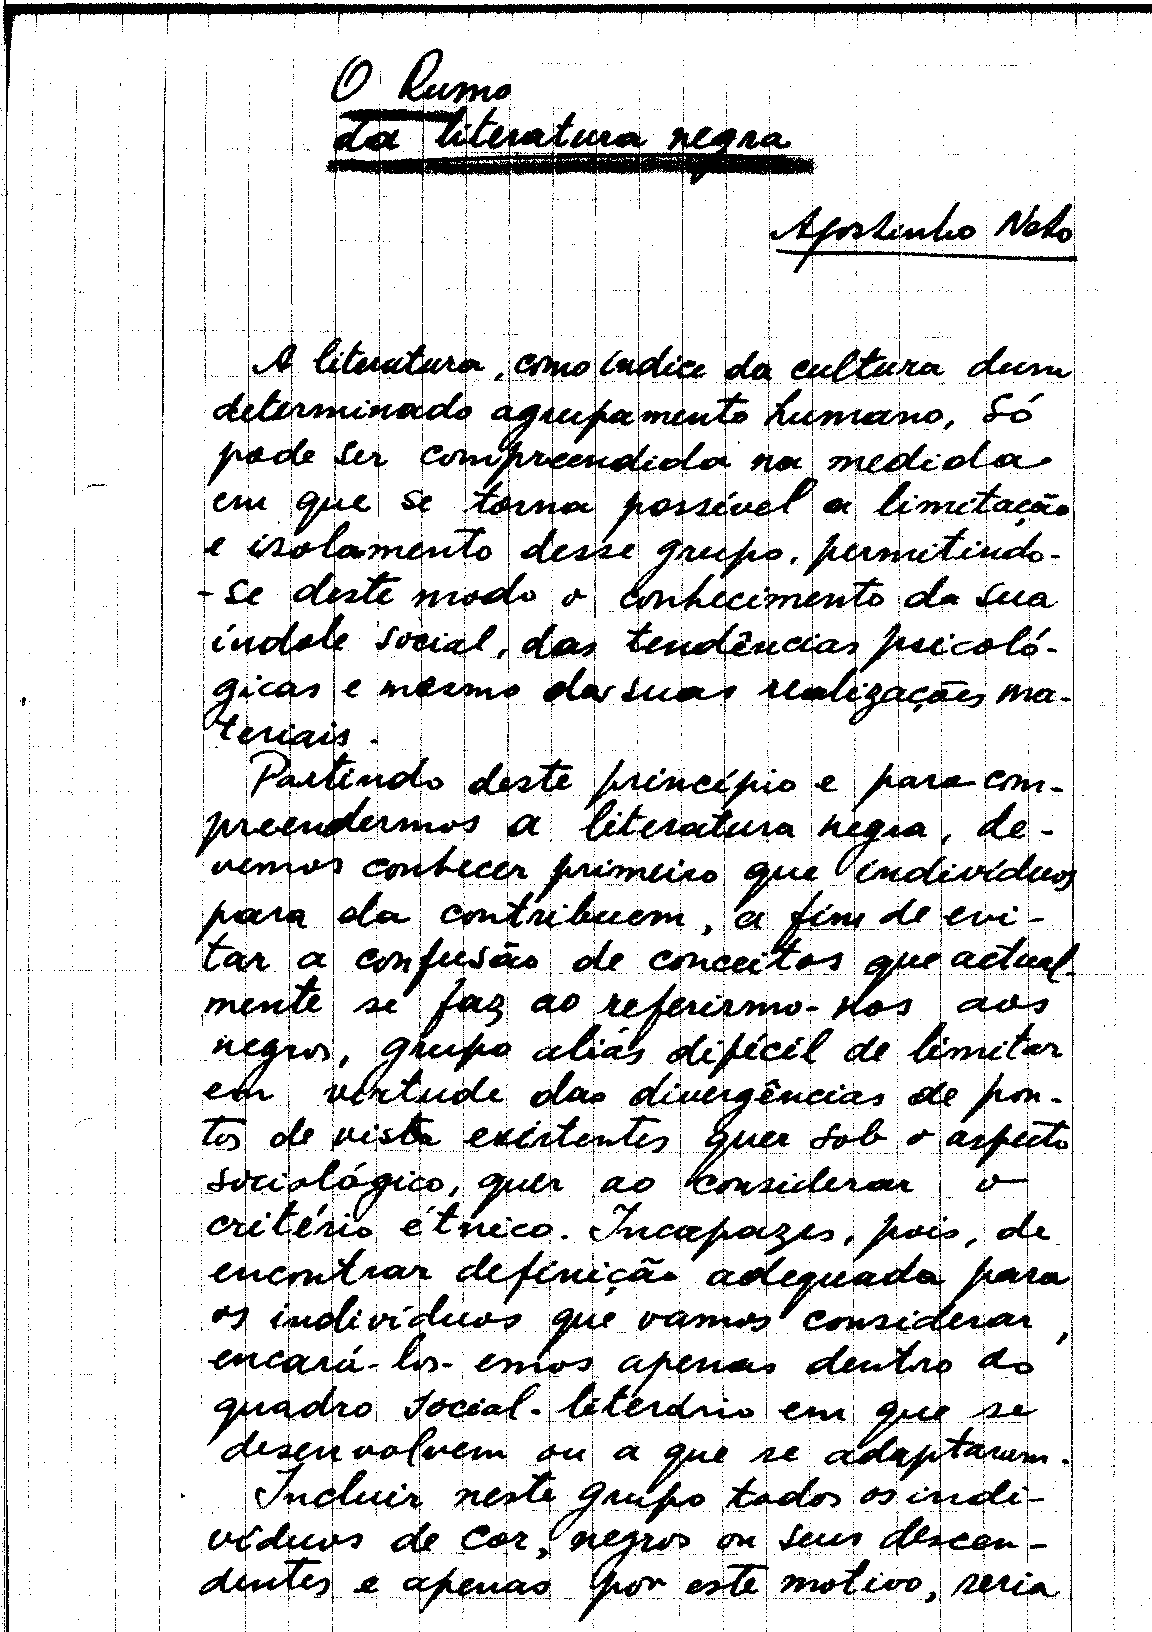 O Rumo
da literatura negra
Agostinho Neto
A literatura, como índice da cultura dum
determinado agrupamento humano, só
pode ser compreendida na medida
em que se torna possível a limitação
e isolamento desse grupo, permitindo-
-se deste modo o conhecimento da sua
índole social, das tendências psicoló-
gicas e mesmo das suas realizações ma-
teriais.
Partindo deste princípio e para com-
preendermos a literatura negra, de-
vemos conhecer primeiro que indivíduos
para ela contribuem, a fim de evi-
tar a confusão de conceitos que actual-
mente se faz ao referirmo-nos aos
negros, grupo aliás difícil de limitar
em virtude das divergências de pon-
tos de vista existentes quer sob o aspecto
sociológico, quer ao considerar o
critério étnico. Incapazes, pois, de
encontrar definição adequada para
os indivíduos que vamos considerar,
encará-los-emos apenas dentro do
quadro social-literário em que se
desenvolvem ou a que se adaptaram.
Incluir neste grupo todos os indi-
víduos de cor, negros ou seus descen-
dentes e apenas por este motivo, seria